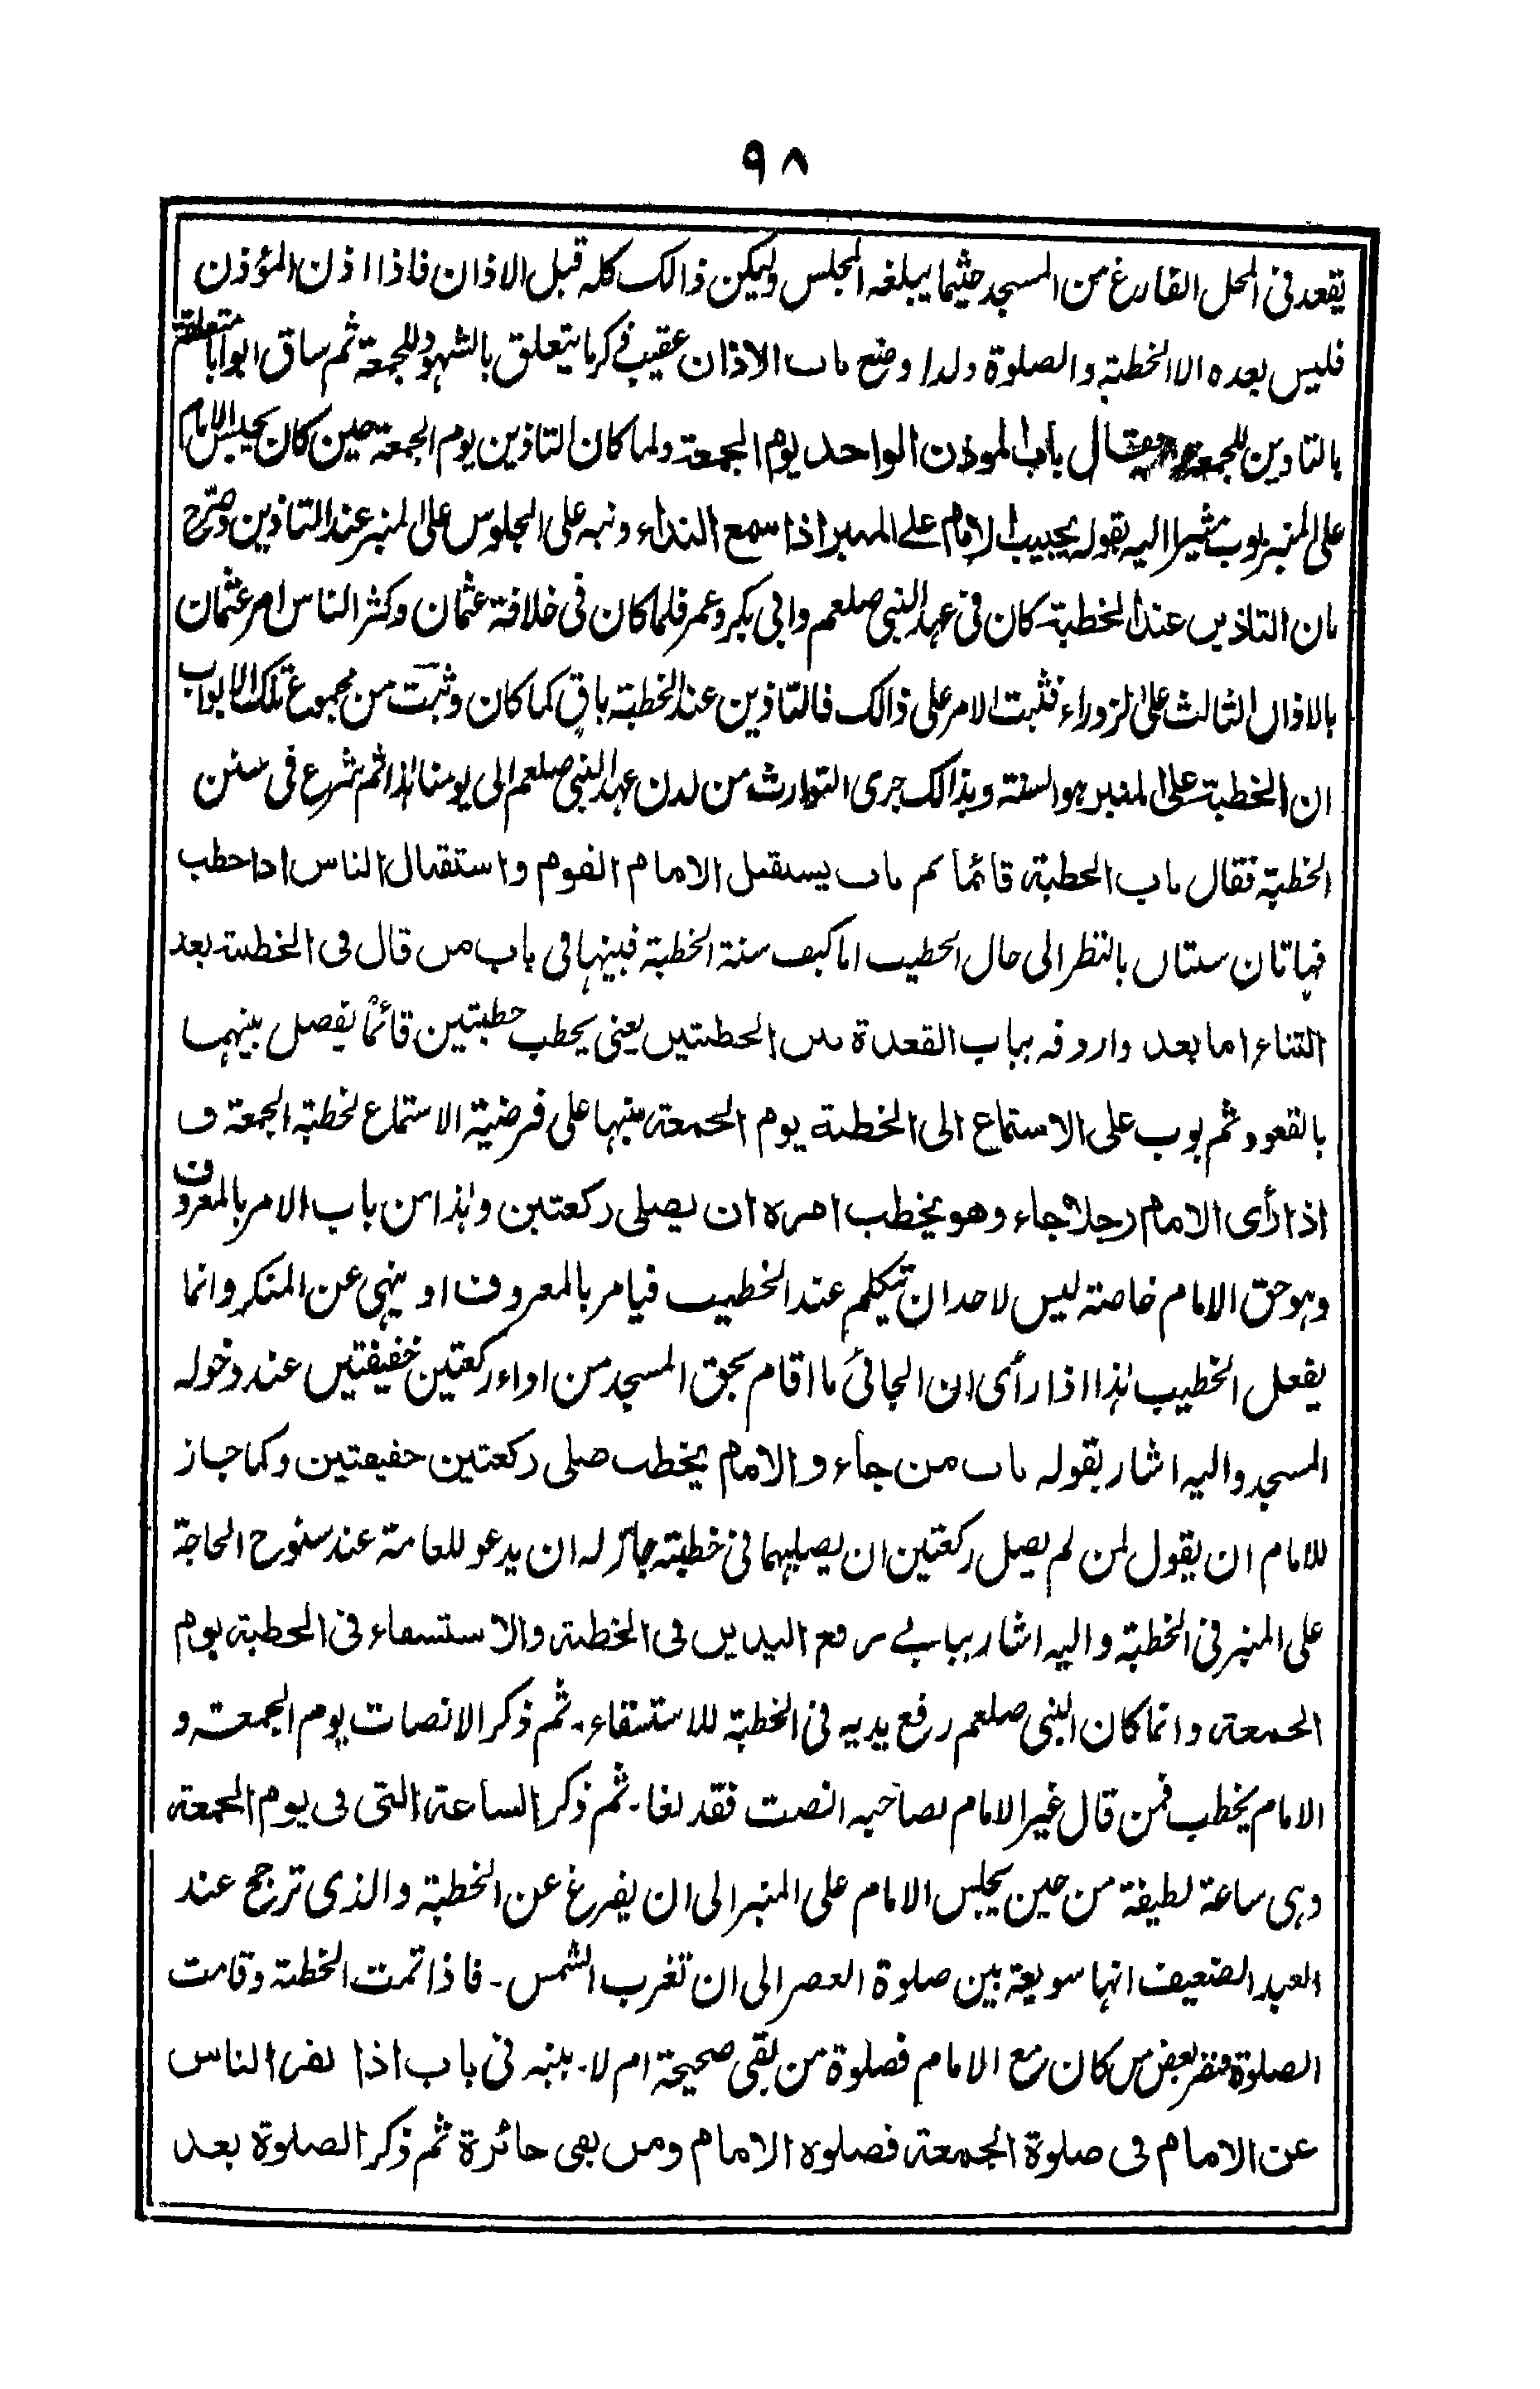 ٩٨
يقعد فى المحل الفارغ من المسجد حيثما يبلغه المجلس وليكن ذالك كله قبل الاذان فاذا اذن المؤذن
فليس بعده الا الخطبة والصلوة ولذا وضع باب الاذان عقيب ذكر ما يتعلق بالشهود للجمعة ثم ساق ابوابا متعلقة
بالتاذين للجمعة فقال باب الموذن الواحد يوم الجمعة ولما كان التاذين يوم الجمعة حين كان يجلس الامام
على المنبر بوب مشيرا اليه بقوله يجيب الامام على المنبر اذا سمع النداء ونبه على الجلوس على المنبر عند التاذين وصرح
بان التاذين عند الخطبة كان فى عهد النبى صلعم وابى بكر وعمر فلما كان فى خلافة عثمان وكثر الناس امر عثمان
بالاذان الثالث على الزوراء فثبت الامر على ذالك فالتاذين عند الخطبة باقٍ كما كان وثبت من مجموع تلك الابواب
ان الخطبة على المنبر هو السنة وبذالك جرى التوارث من لدن عهد النبى صلعم الى يومنا هذا ثم شرع فى سنن
الخطبة فقال باب الخطبة قائما ثم باب يستقبل الامام القوم واستقبال الناس اذا خطب
فهاتان سنتان بالنظر الى حال الخطيب اما كيف سنة الخطبة فبينها فى باب من قال فى الخطبة بعد
الثناء اما بعد واردفه بباب القعدة بين الخطبتين يعنى يخطب خطبتين قائما يفصل بينهما
بالقعود ثم بوب على الاستماع الى الخطبة يوم الجمعة منبها على فرضية الاستماع لخطبة الجمعة ف
اذا رأى الامام رجلا جاء وهو يخطب امره ان يصلى ركعتين وهذا من باب الامر بالمعروف
وهو حق الامام خاصة ليس لاحد ان يتكلم عند الخطيب فيامر بالمعروف او ينهى عن المنكر وانما
يفعل الخطيب هذا اذا رأى ان الجائى ما اقام بحق المسجد من اداء ركعتين خفيفتين عند دخوله
المسجد واليه اشار بقوله باب من جاء والامام يخطب صلى ركعتين خفيفتين وكما جاز
للامام ان يقول لمن لم يصل ركعتين ان يصليهما فى خطبته جائز له ان يدعو للعامة عند سنوح الحاجة
على المنبر فى الخطبة واليه اشار بباب رفع اليدين فى الخطبة والاستسقاء فى الخطبة يوم
الجمعة وانما كان النبى صلعم رفع يديه فى الخطبة للاستسقاء۔ ثم ذكر الانصات يوم الجمعة و
الامام يخطب فمن قال غير الامام لصاحبه انصت فقد لغا۔ ثم ذكر الساعة التى فى يوم الجمعة
وهى ساعة لطيفة من حين يجلس الامام على المنبر الى ان يفرغ عن الخطبة والذى ترجح عند
العبد الضعيف انها سويعة بين صلوة العصر الى ان تغرب الشمس۔ فاذا تمت الخطبة وقامت
الصلوة فنفر بعض من كان مع الامام فصلوة من بقى صحيحة ام لا۔ بينه فى باب اذا نفر الناس
عن الامام فى صلوة الجمعة فصلوة الامام ومن بقى جائزة ثم ذكر الصلوة بعد